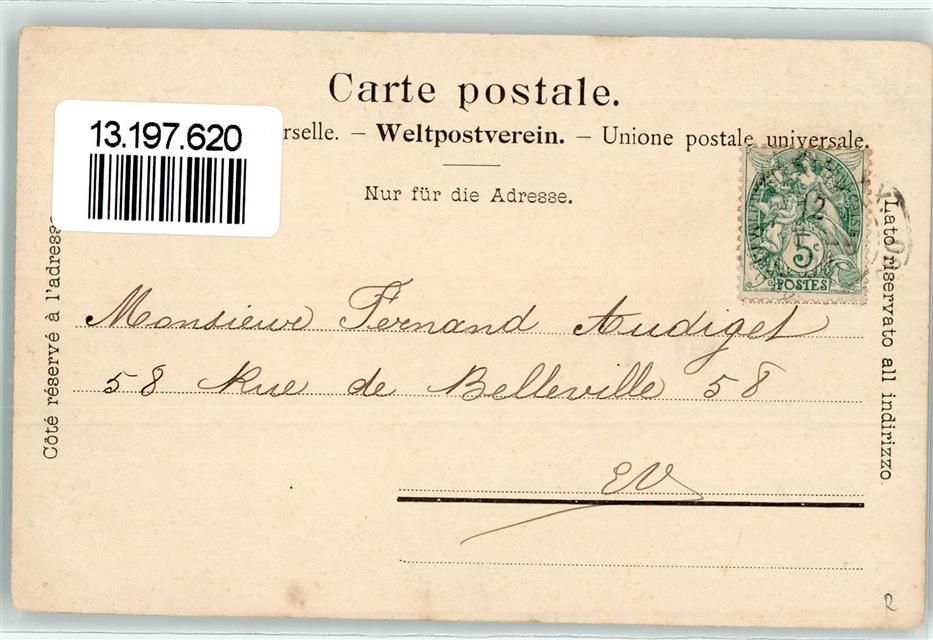 Carte postale.
13.197.620
rselle. – Weltpostverein. – Unione postale universale.
Nur für die Adresse.
Côté réservé à l'adresse
Lato riservato all indirizzo.
5c
POSTES
12
Monsieur Fernand Audiget
58 Rue de Belleville 58
EV
R